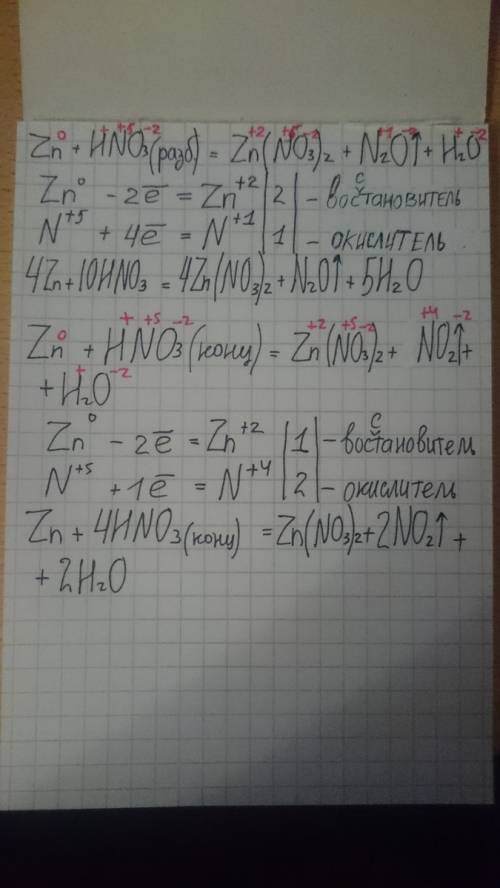 Zn⁰ + H⁺N⁺⁵O₃⁻²(разб) = Zn⁺²(N⁺⁵O₃⁻²)₂ + N₂⁺¹O⁻²↑ + H₂⁺O⁻²
Zn⁰ - 2e̅ = Zn⁺² | 2 | - востсановитель
N⁺⁵ + 4e̅ = N⁺¹ | 1 | - окислитель
4Zn+10HNO₃ = 4Zn(NO₃)₂+N₂O↑+5H₂O
Zn⁰ + H⁺N⁺⁵O₃⁻²(конц) = Zn⁺²(N⁺⁵O₃⁻²)₂ + N⁺⁴O₂⁻²↑+
+H₂⁺O⁻²
Zn⁰ - 2e̅ = Zn⁺² | 1 | - восстановител
N⁺⁵ + 1e̅ = N⁺⁴ | 2 | - окислитель
Zn + 4HNO₃(конц) = Zn(NO₃)₂+2NO₂↑ +
+ 2H₂O